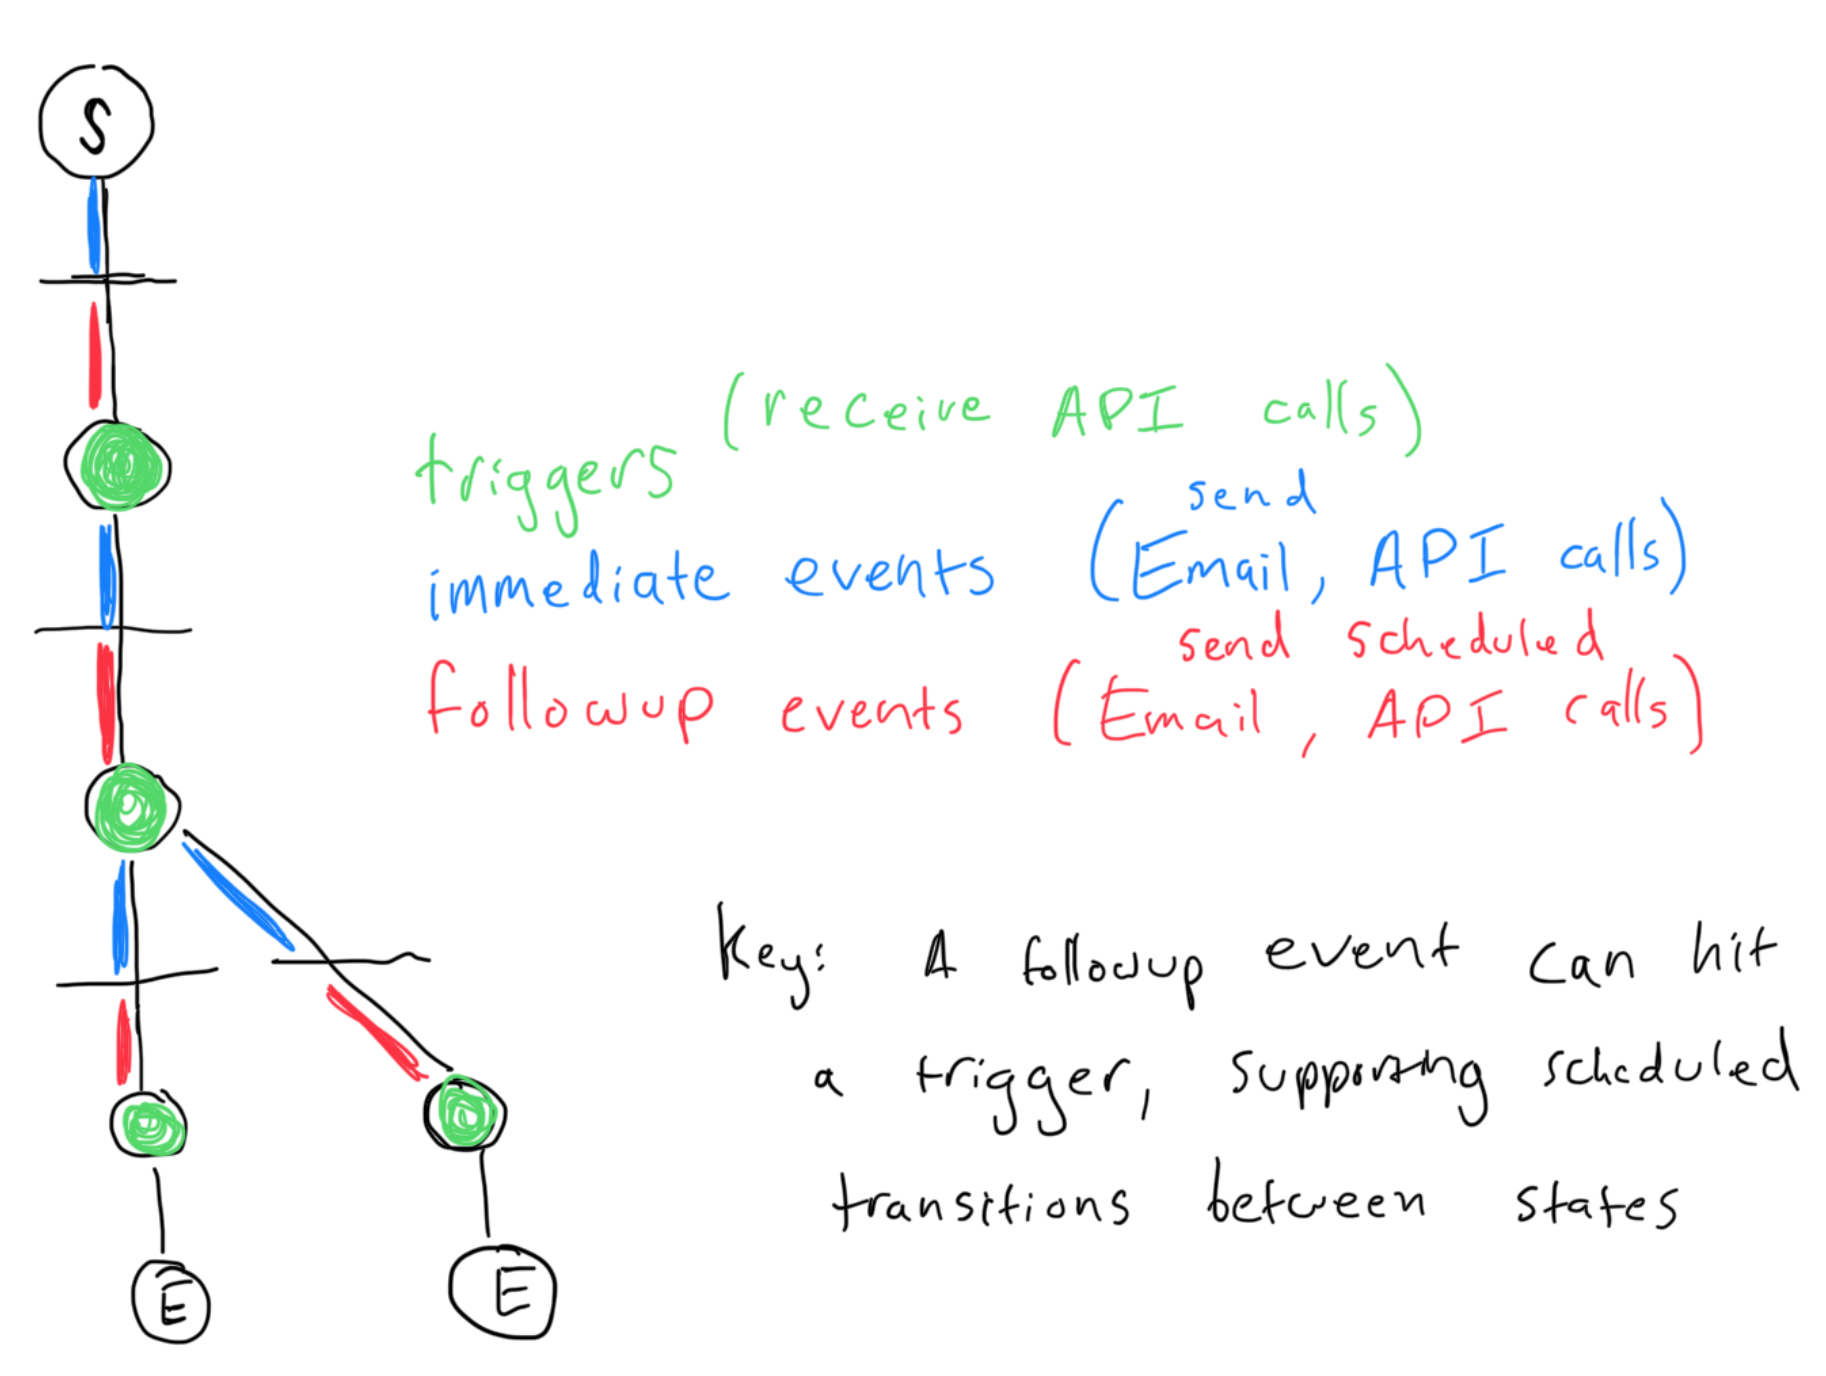 S
triggers (receive API calls)
send
immediate events (Email, API calls)
send scheduled
followup events (Email, API calls)
Key: A followup event can hit
a trigger, supporting scheduled
transitions between states
E
E